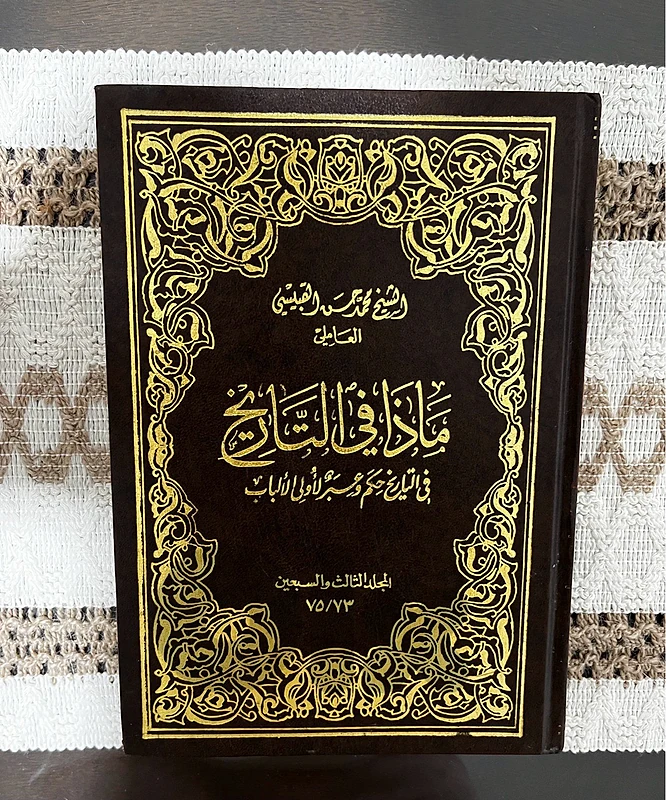 الشيخ محمد حسن القبيسي
العاملي
مَاذَا فِي التَّارِيخ
في التاريخ حكم وعبر لأولي الألباب
المجلد الثالث والسبعين
٧٥/٧٣